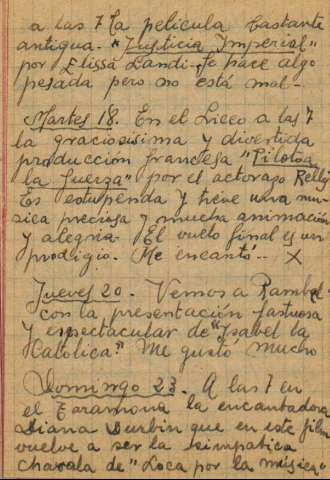 a las 7 la pelicula bastante
antigua. "Justicia Imperial"
por Elissa Landi. Se hace algo
pesada pero no está mal-
Martes 18. En el Liceo a las 7
la graciosisima y divertida
producción francesa "Piloto a
la fuerza" por el actorazo Rellys
Es estupenda y tiene una mu-
sica preciosa y mucha animación
y alegria. El vuelo final es un
prodigio. Me encantó.. X
Jueves 20. Vemos a Rambal
con la presentación fastuosa
y espectacular de "Isabel la
Católica." Me gustó mucho
Domingo 23. A las 7 en
el Taramona la encantadora
Diana Durbin que en este film
vuelve a ser la simpatica
chavala de "Loca por la música"